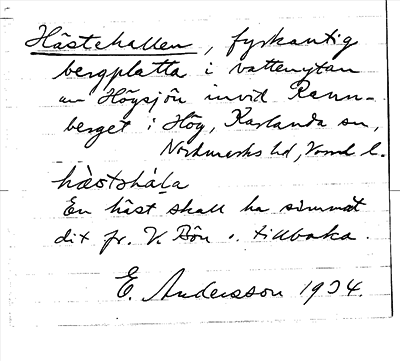 Hästehallen, fyrkantig
bergplatta i vattenytan
av Högsjön invid Renn-
berget i Hög, Karlanda sn,
Nordmarks hd, Vrml. l.
hä̀stəhála
En häst skall ha simmat
dit fr. V. Bön o. tillbaka.
E. Andersson 1934.